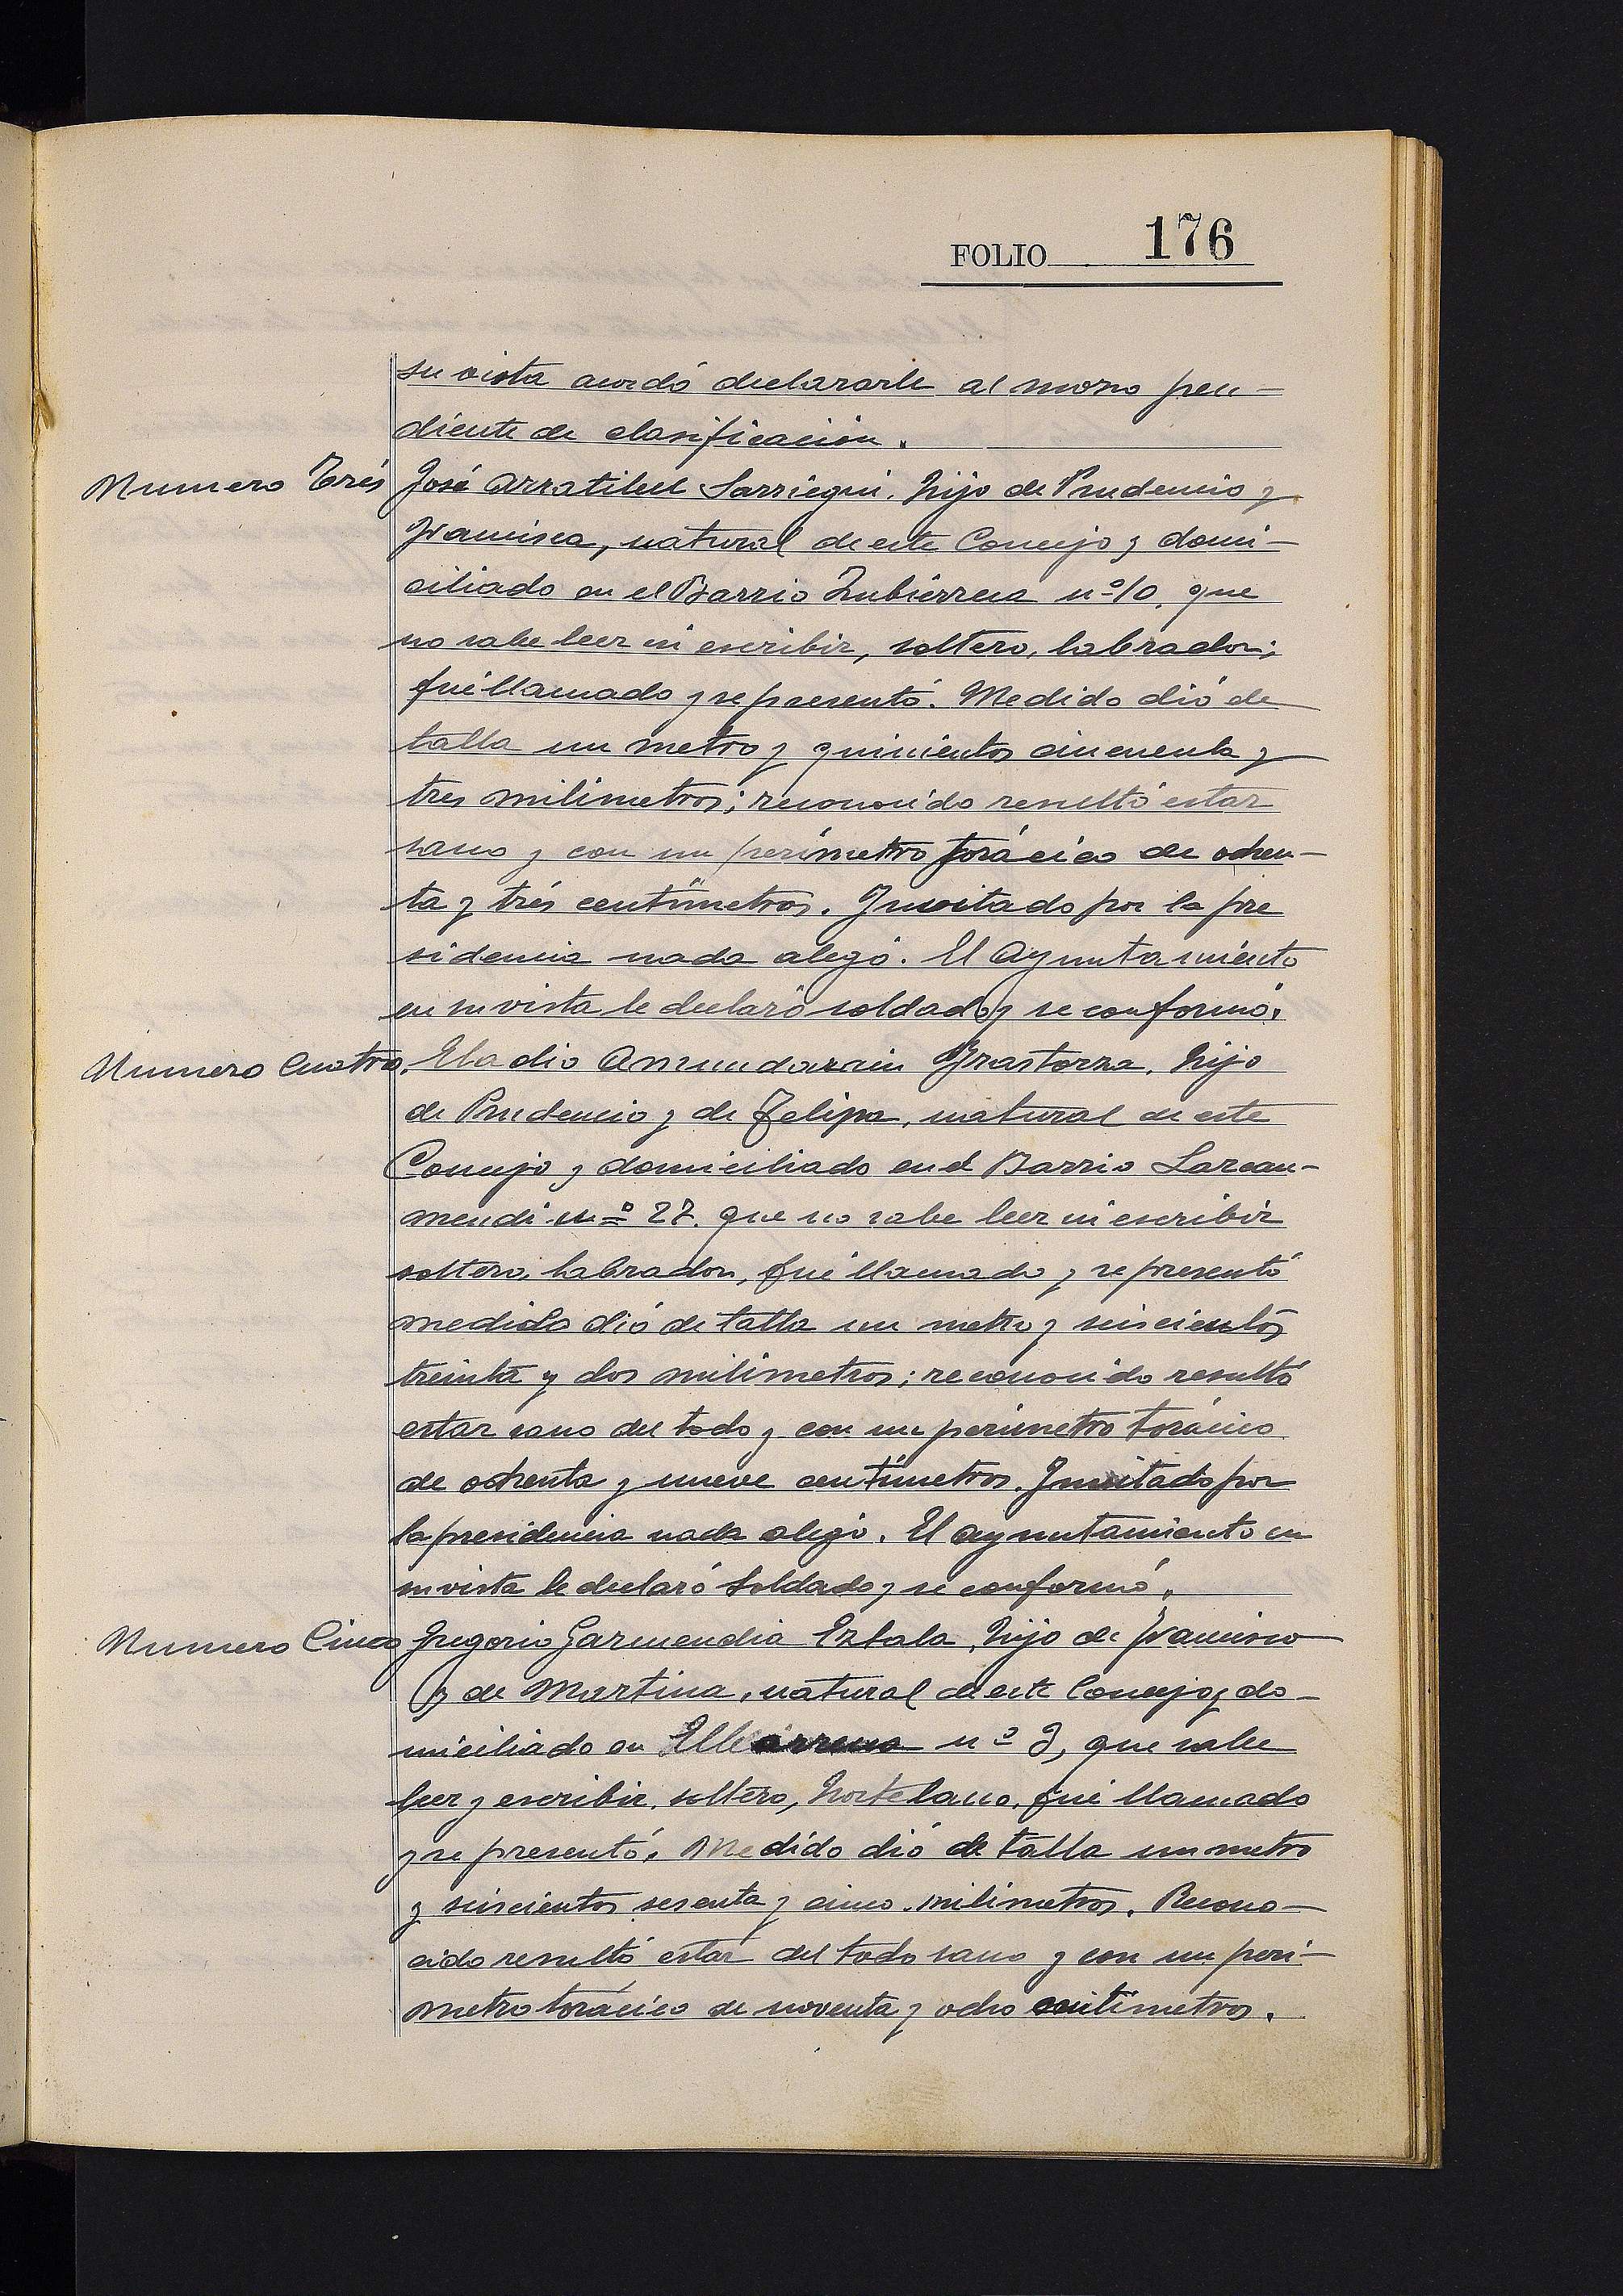 FOLIO 176
su vista acordó declararle al mozo pen-
diente de clasificación.
Numero Trés José Arratibel Sarriegui, hijo de Prudencio y
Francisca, natural de este Concejo y domi-
ciliado en el Barrio Zubierreca nº 10, que
no sabe leer ni escribir, soltero, labrador;
fué llamado y se presentó. Medido dió de
talla un metro y quinientos cincuenta y
tres milimetros; reconocido resultó estar
sano y con un perimetro torácico de ochen-
ta y trés centimetros. Invitado por la pre
sidencia nada alegó. El Ayuntamiento
en su vista le declaró soldado y se conformó.
Numero Cuatro. Eladio Amundarain Ynastorza, hijo
de Prudencio y de Felipa, natural de este
Concejo y domiciliado en el Barrio Larcan-
mendi nº 27. que no sabe leer ni escribir
soltero, labrador, fué llamado y se presentó
medido dió de talla un metro y seiscientos
treinta y dos milimetros; reconocido resultó
estar sano del todo y con un perimetro torácico
de ochenta y nueve centimetros. Invitado por
la presidencia nada alegó. El ayuntamiento en
su vista le declaró soldado y se conformó.
Numero Cinco Gregorio Garmendia Eztala, hijo de Francisco
y de Martina, natural de este Concejo y do-
miciliado en nº 3, que sabe
leer y escribir, soltero, hortelano, fué llamado
y se presentó. Medido dió de talla un metro
y seiscientos sesenta y cinco milimetros. Recono-
cido resultó estar del todo sano y con un peri-
metro torácico de noventa y ocho centimetros.